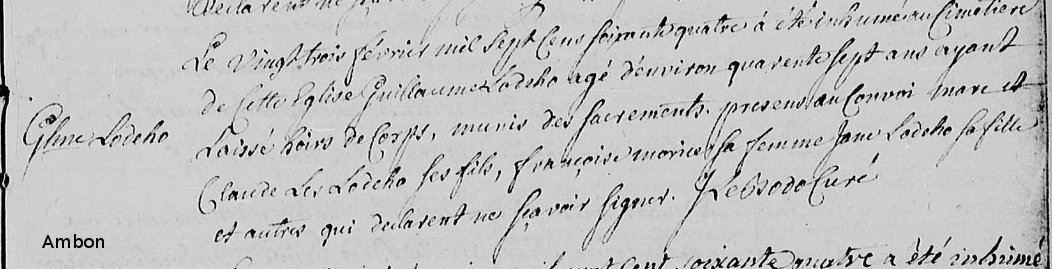 declarent ne
Le vingt trois février mil sept cens soixante quatre à été inhumé au Cimetiere
de Cette Eglise Guillaume Lodeho agé d'environ quarente sept ans ayant
Glme Lodeho
Laissé hoirs de Corps, munis des sacrements. presens au Convoi marc et
Claude Les Lodeho ses fils, françoise morice sa femme Jane Lodeho sa fille
et autres qui declarent ne sçavoir signer. Curé
Ambon
soixante quatre a été inhumé